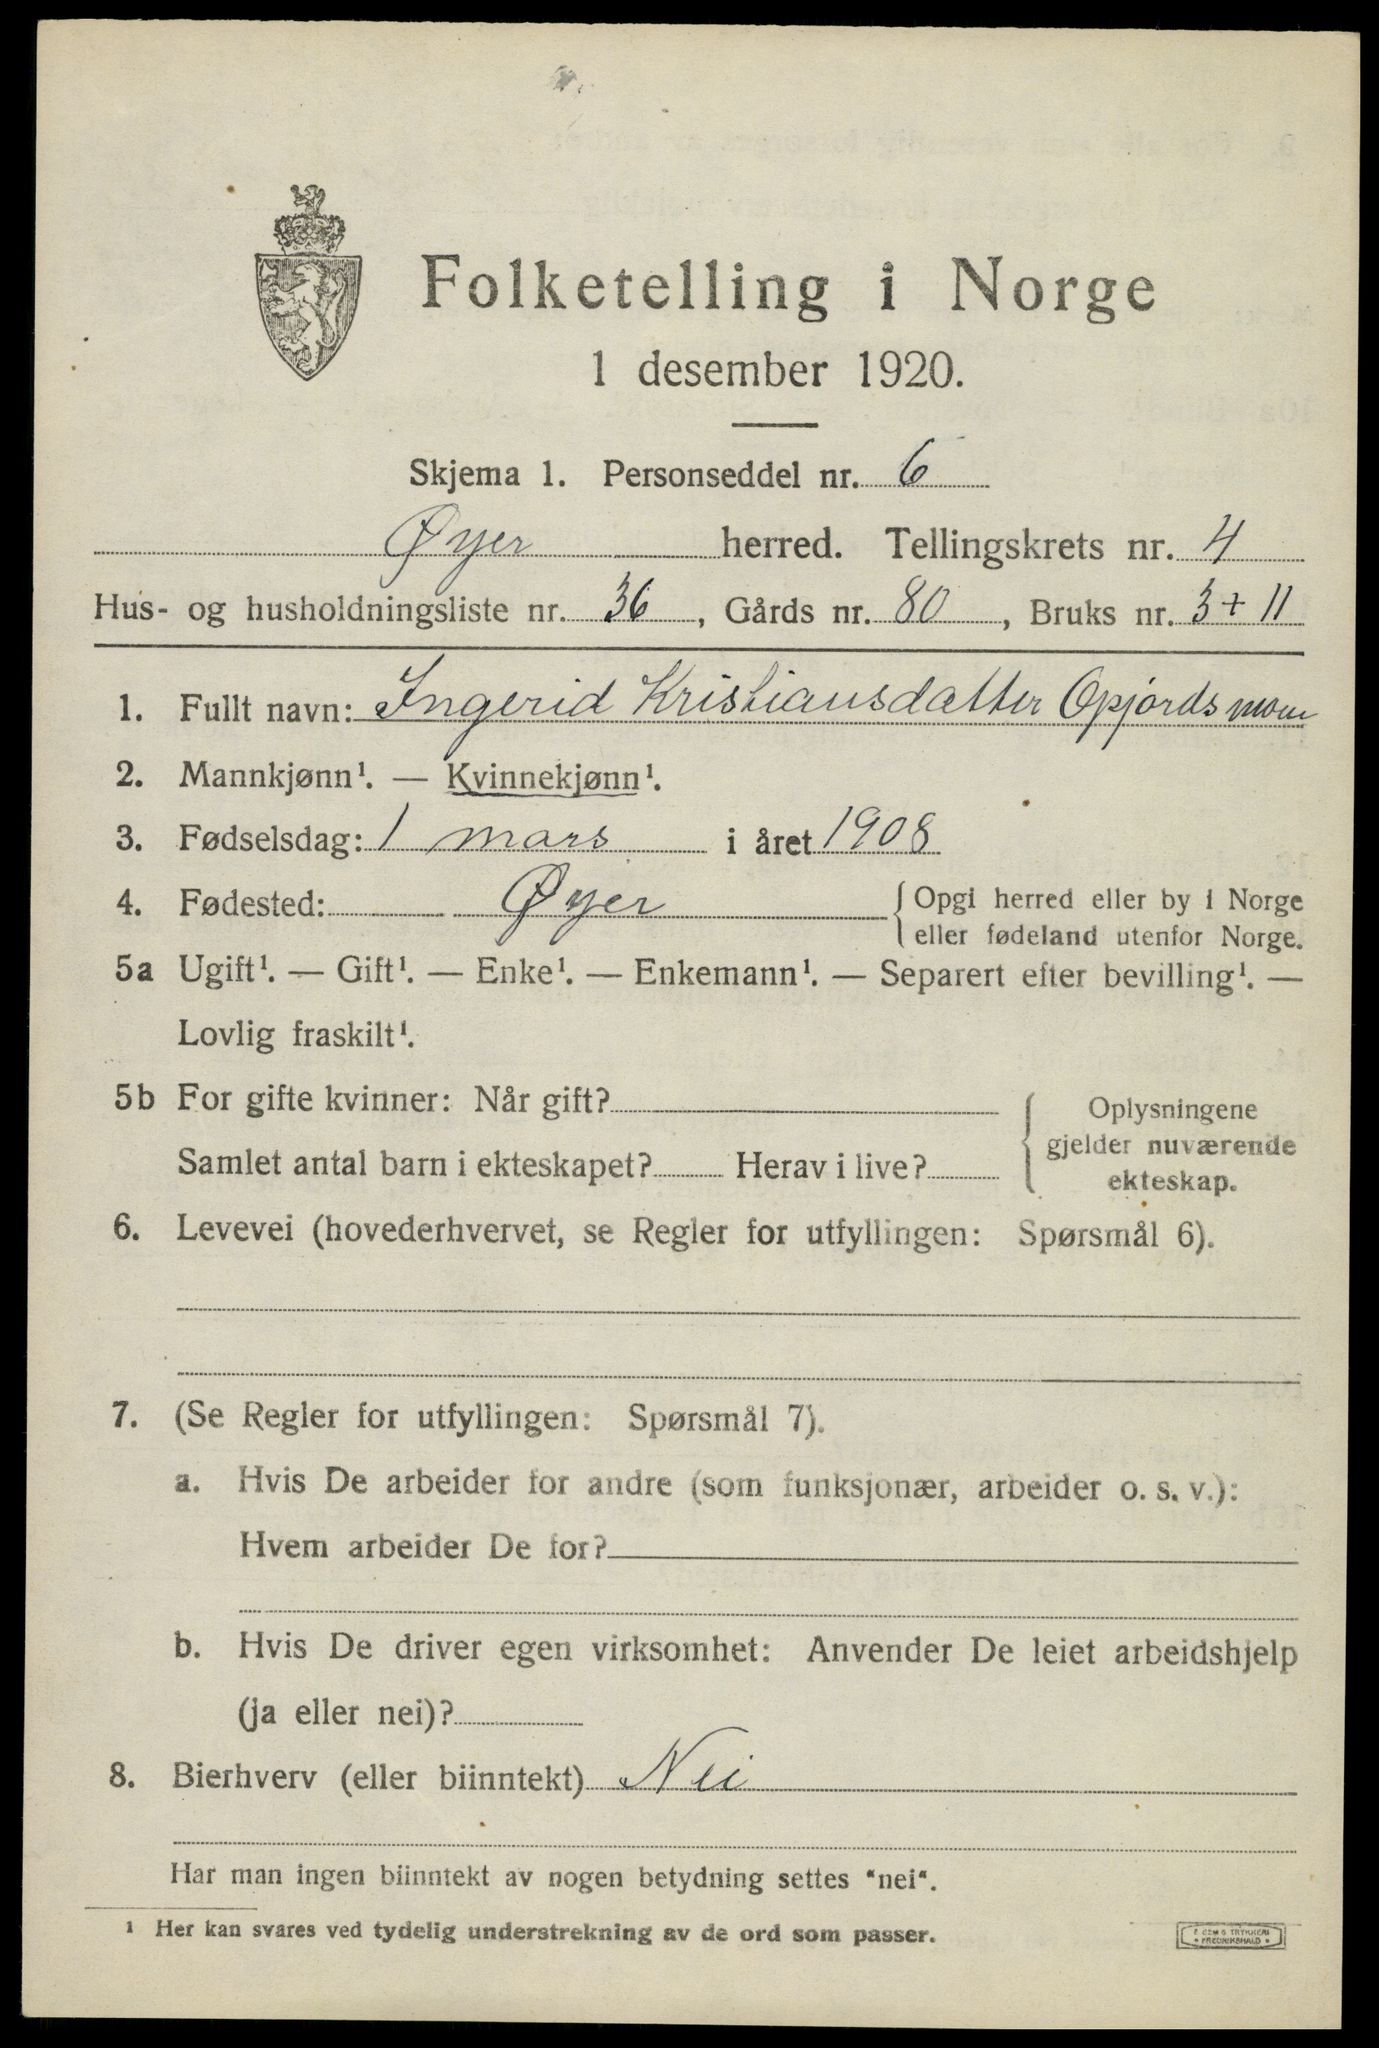 Folketelling i Norge
1 desember 1920.
Skjema 1. Personseddel nr. 6
Øyer herred. Tellingskrets nr. 4
Hus- og husholdningsliste nr. 36, Gårds nr. 80, Bruks nr. 3 + 11
1. Fullt navn: Ingerid Kristiansdatter Opjordsmoen
2. Mannkjønn¹. — Kvinnekjønn¹.
3. Fødselsdag: 1 mars i året 1908
4. Fødested: Øyer { Opgi herred eller by i Norge
eller fødeland utenfor Norge.
5a Ugift¹. — Gift¹. — Enke¹. — Enkemann¹. — Separert efter bevilling¹. —
Lovlig fraskilt¹.
5b For gifte kvinner: Når gift? { Oplysningene
gjelder nuværende
Samlet antal barn i ekteskapet? Herav i live? ekteskap.
6. Levevei (hovederhvervet, se Regler for utfyllingen: Spørsmål 6).
7. (Se Regler for utfyllingen: Spørsmål 7).
a. Hvis De arbeider for andre (som funksjonær, arbeider o. s. v.):
Hvem arbeider De for?
b. Hvis De driver egen virksomhet: Anvender De leiet arbeidshjelp
(ja eller nei)?
8. Bierhverv (eller biinntekt) Nei
Har man ingen biinntekt av nogen betydning settes “nei“.
¹ Her kan svares ved tydelig understrekning av de ord som passer.
TRYKKERI
• FREDRIKSHALD •